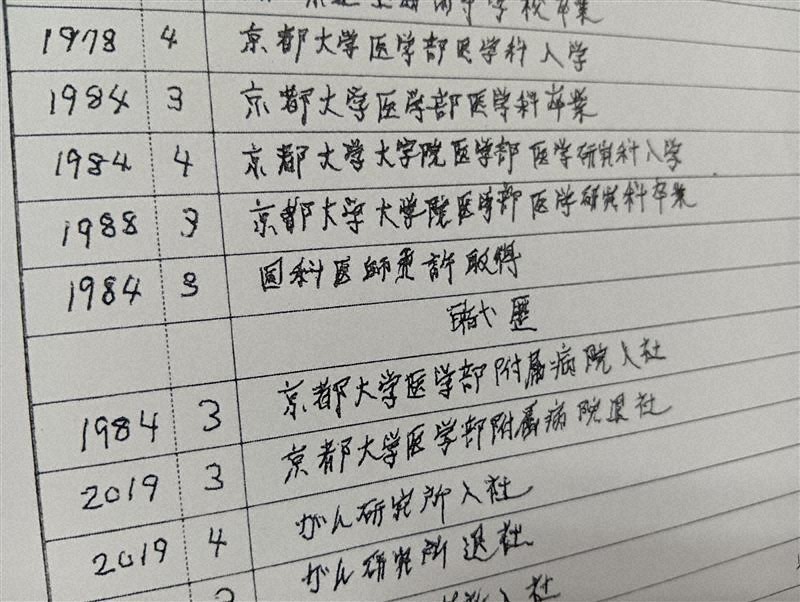 卒業
1978 4 京都大学医学部医学科入学
1984 3 京都大学医学部医学科卒業
1984 4 京都大学大学院医学部医学研究科入学
1988 3 京都大学大学院医学部医学研究科卒業
1984 3 科医師免許取得
職歴
1984 3 京都大学医学部附属病院入社
2019 3 京都大学医学部附属病院退社
2019 4 がん研究所入社
がん研究所退社
入社